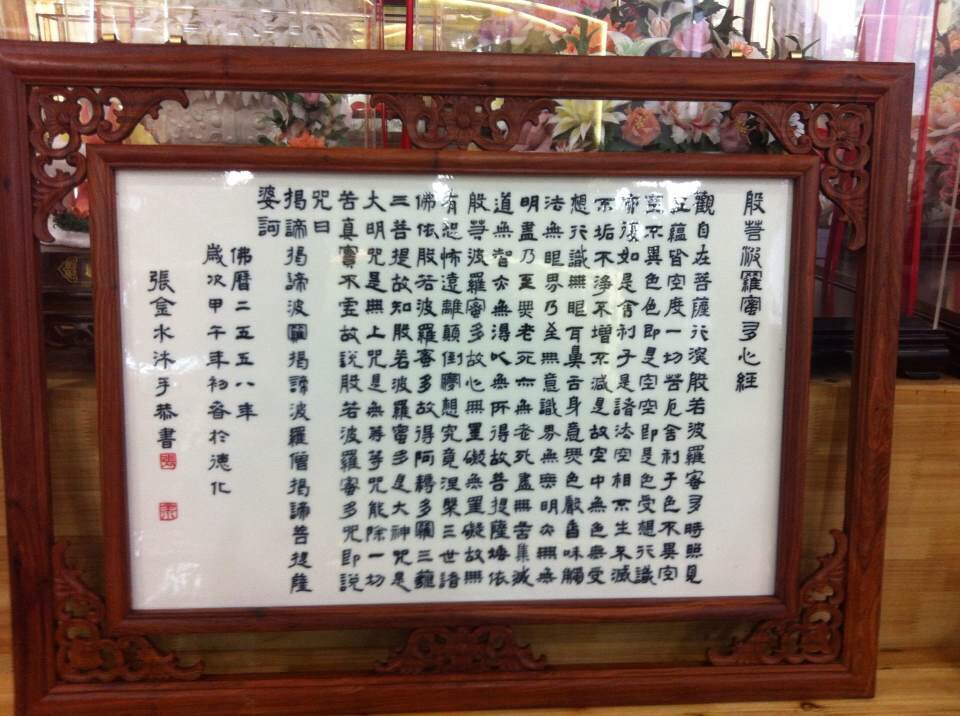 般若波羅蜜多心經
觀自在菩薩行深般若波羅蜜多時照見
五蘊皆空度一切苦厄舍利子色不異空
空不異色色即是空空即是色受想行識
亦復如是舍利子是諸法空相不生不滅
不垢不淨不增不減是故空中無色無受
想行識無眼耳鼻舌身意無色聲香味觸
法無眼界乃至無意識界無無明亦無無
明盡乃至無老死亦無老死盡無苦集滅
道無智亦無得以無所得故菩提薩埵依
般若波羅蜜多故心無罣礙無罣礙故無
有恐怖遠離顛倒夢想究竟涅槃三世諸
佛依般若波羅蜜多故得阿耨多羅三藐
三菩提故知般若波羅蜜多是大神咒是
大明咒是無上咒是無等等咒能除一切
苦真實不虛故說般若波羅蜜多咒即說
咒曰
揭諦揭諦波羅揭諦波羅僧揭諦菩提薩
婆訶
佛曆二五五八年
歲次甲午年初春於德化
張金水沐手恭書